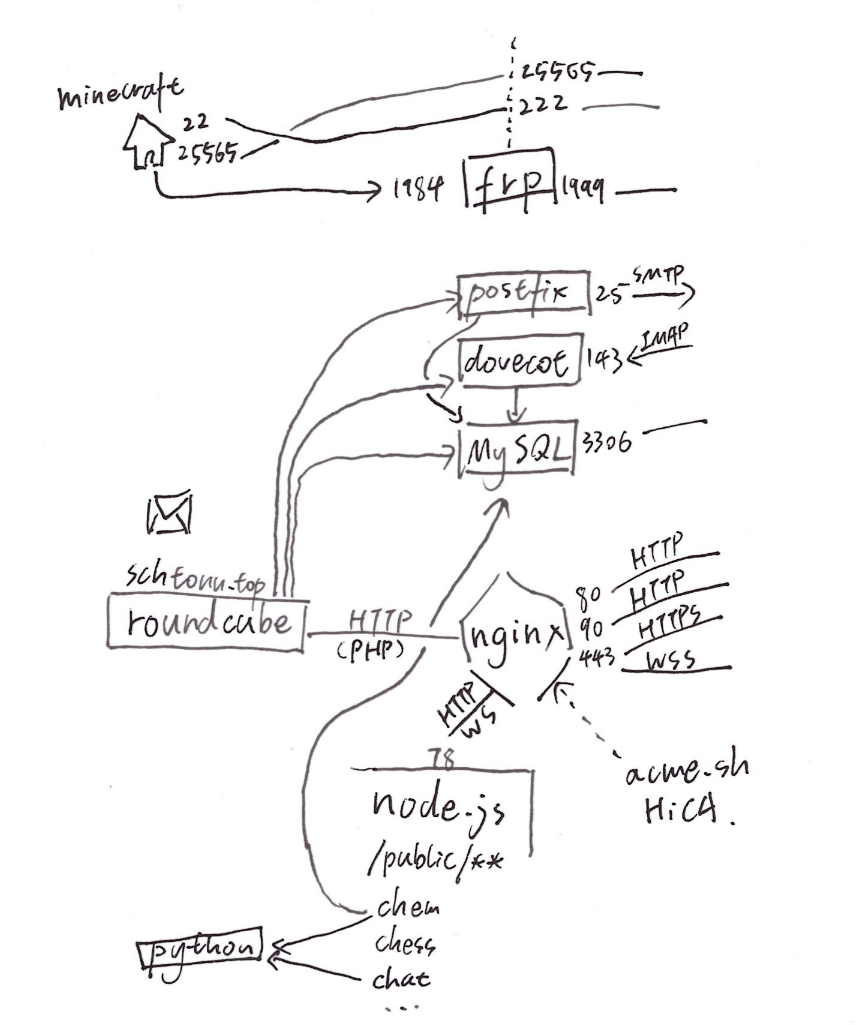 minecraft
22
25565
25565
222
1984
frp
1999
postfix
25
SMTP
dovecot
143
IMAP
MySQL
3306
schtonn.top
roundcube
HTTP
(PHP)
nginx
80
HTTP
90
HTTP
443
HTTPS
WSS
HTTP
WS
acme.sh
HiCA.
78
node.js
/public/**
chem
chess
chat
...
python